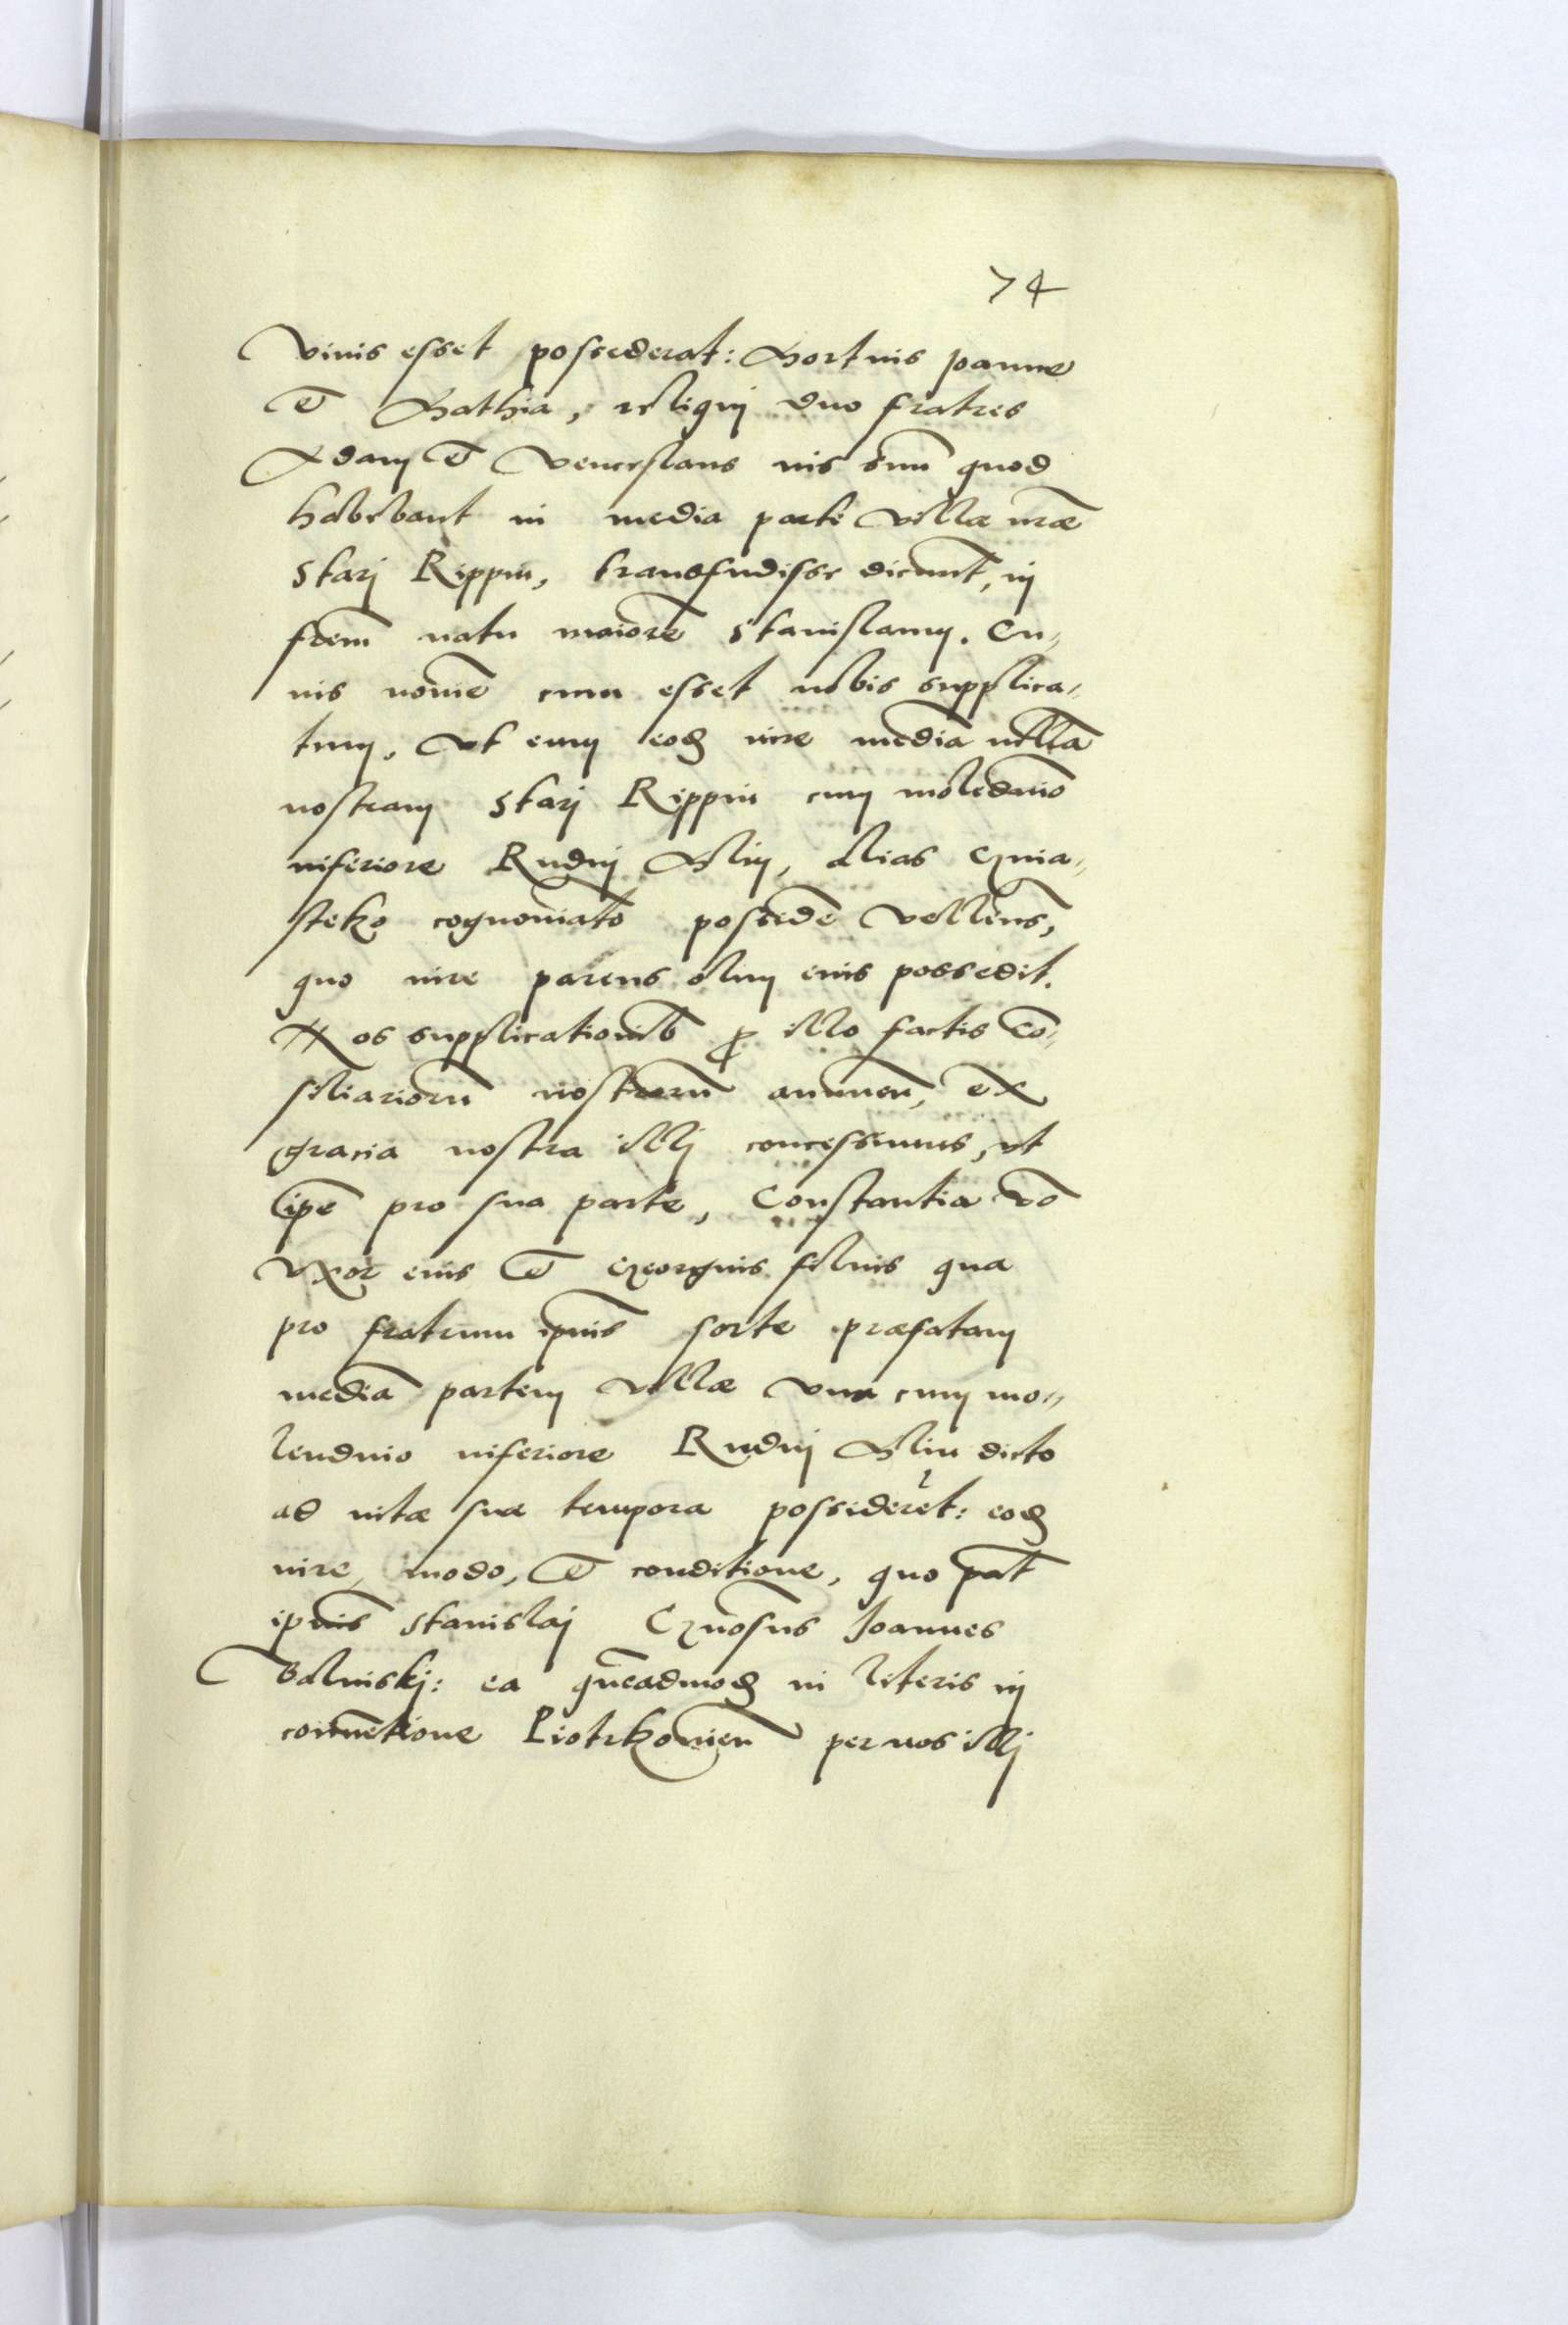 74
viuis esset possederat: Mortuis Joanne
et Mathia, reliqui duo fratres
Adam et Venceslaus ius suu̅ quod
habebant in media parte villæ nr̅æ
Stary Rippin, transfudisse dicunt, in
fr̅em natu maiore̅ Stanislaum. Cu-
ius no̅i̅e cum esset nobis supplica-
tum, vt eum eod̅ iure media̅ villa̅
nostram Stary Rippin cum mole̅dino
inferiore Rudny Mlin, alias
cogno̅i̅ato posside̅ velle̅us,
quo iure parens olim eius possedit.
Nos supplicationib pro illo factis co̅-
siliarioru̅ nostroru̅ annuen̅, ex
gratia nostra illi concessimus, vt
ip̅e pro sua parte, Constantia v̅o
vxor eius et Georgius filius qua
pro fratrum ip̅ius sorte præfatam
media̅ partem villæ vna cum mo-
lendino inferiore Rudny Mlin dicto
ad vitæ suæ tempora possidere̅t: eod̅
iure, modo, et conditione, quo pat̅
ip̅ius Stanislai G̅nosus Joannes
Balinski: ea que̅admod̅ in literis in
conue̅tione Piotrkouien̅ per nos illi